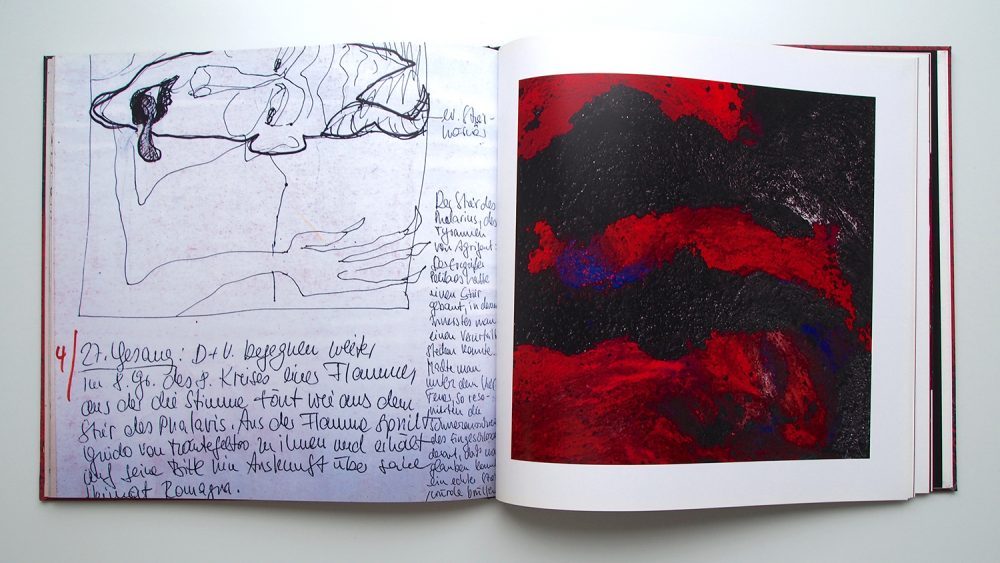 w. Stier-
Der Stier des
Phalarius, des
Tyrannen
von Agrigent:
Der Erzgießer
Perillos hatte
einen Stier
gebaut, in dessen
Innerstes man
einen Verurteilt
stecken konnte.
Machte man
unter dem Stier
Feuer, so reso-
nierten die
Schmerzensschreie
des Eingeschlossen
derart, daß man
glauben konnte
ein echter Stier
würde brüllen
4/ 27. Gesang: D + V. begegnen weiter
im 8. Gr. des 8. Kreises einer Flamme
aus der die Stimme tönt wie aus dem
Stier des Phalaris. Aus der Flamme spricht
Guido von Montefeltro zu ihnen und erhält
auf seine Bitte hin Auskunft über seine
Heimat Romagna.